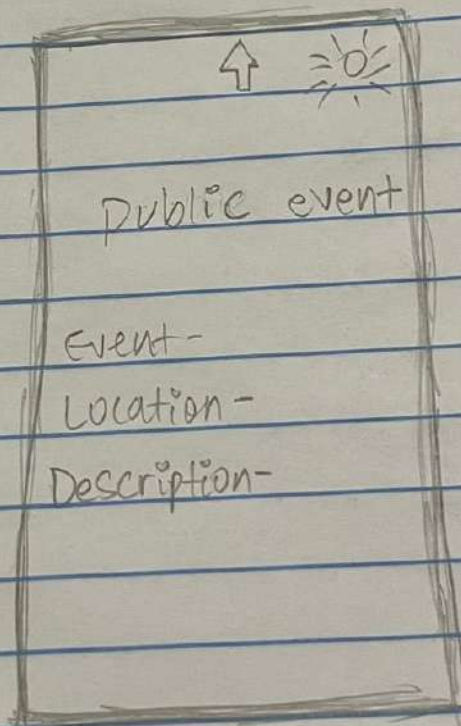 Public event
Event-
Location-
Description-